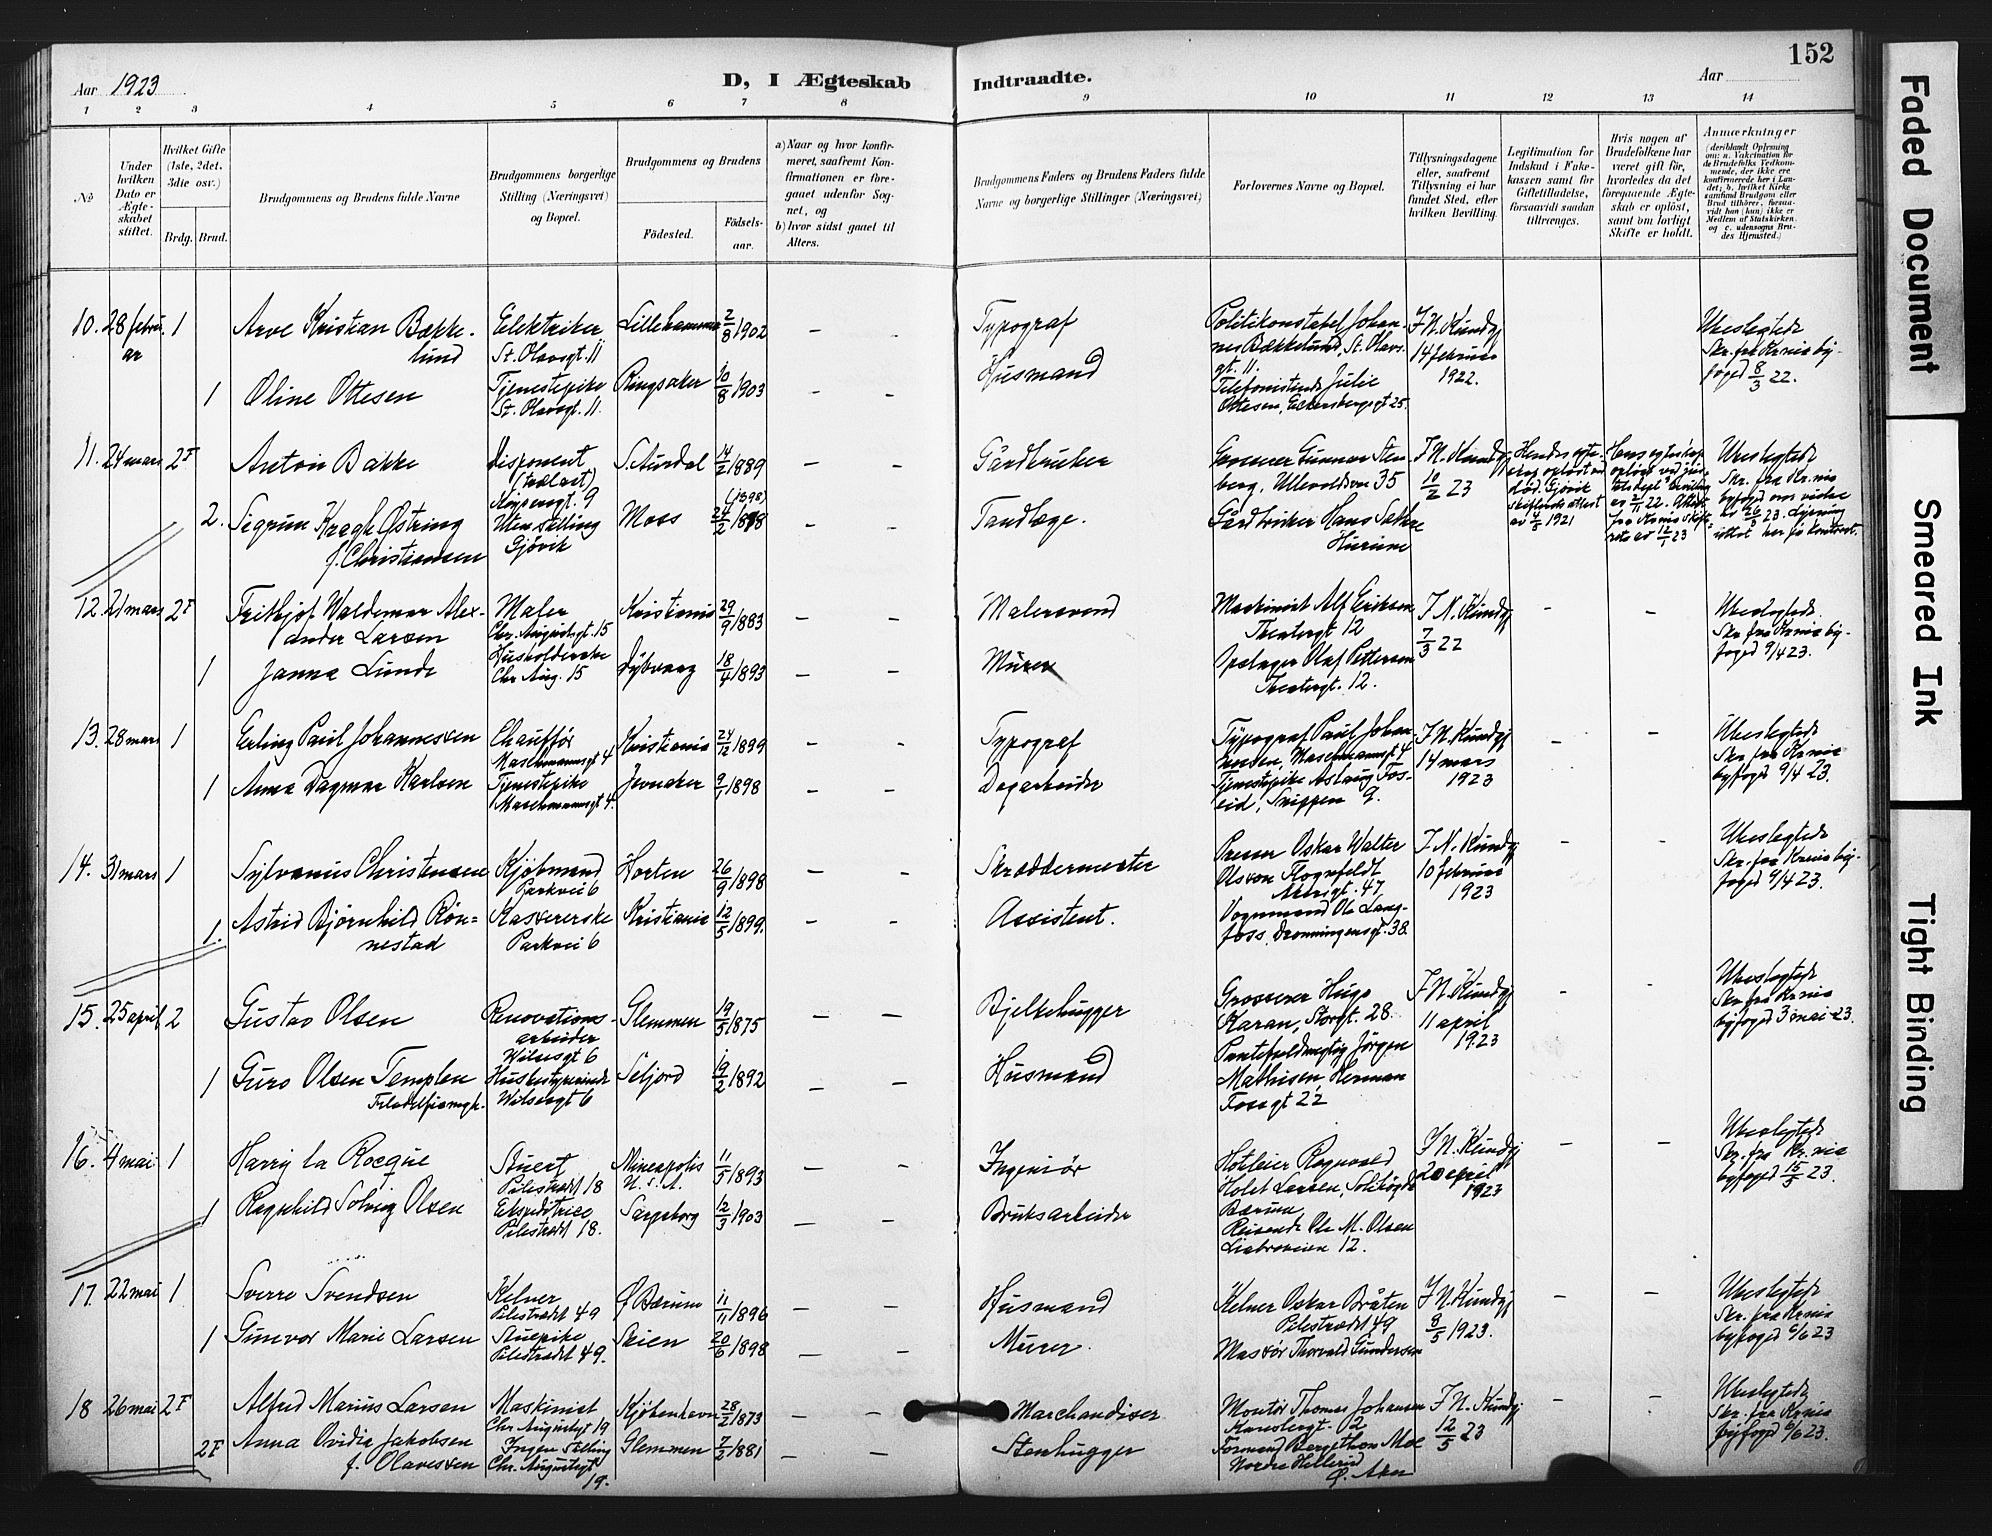 152
Aar 1923
D, I Ægteskab
Indtraadte.
Aar
1 2 3 4 5 6 7 8 9 10 11 12 13 14
№
Under hvilken Dato er Ægteskabet stiftet.
Hvilket Gifte (1ste, 2det, 3die osv.)
Brdg. Brud.
Brudgommens og Brudens fulde Navne
Brudgommens borgerlige Stilling (Næringsvei) og Bopæl.
Brudgommens og Brudens
Födested.
Födselsaar.
a) Naar og hvor konfirmeret, saafremt Konfirmationen er foregaaet udenfor Sognet, og
b) hvor sidst gaaet til Alters.
Brudgommens Faders og Brudens Faders fulde Navne og borgerlige Stillinger (Næringsvei)
Forlovernes Navne og Bopæl.
Tillysningsdagene eller, saafremt Tillysning ei har fundet Sted, efter hvilken Bevilling.
Legitimation for Indskud i Enkekassen samt for Giftetilladelse, forsaavidt saadan tiltrænges.
Hvis nogen af Brudefolkene har været gift för, hvorledes da det foregaaende Ægteskab er oplöst, samt om lovligt Skifte er holdt.
Anmærkninger
10. 28 februar 1
Arve Kristian Bækkelund
Elektriker
St. Olavsgt. 11
Lillehammer
2/8 1902
Typograf
Politikonstabel Johannes Bækkelund, St. Olavsgt. 11.
F.N. Kundgj
14 februar
1922.
Ubeslegtede
Skr. fra Kr.nia byfoged 8/3 22.
1 Oline Ottesen
Tjenestepike
St. Olavsgt. 11.
Ringsaker
10/8 1903
Husmand
Telefonistinde Julie
Ottesen, Eckersbergsgt 25.
11. 24 mars 2F
Anton Bakke
Disponent
(trælast)
S. Aurdal
14/2 1889
Gårdbruker
Grosserer Gunnar Stenberg, Ullevoldsvn 35
F.N. Kundgj
10/2 23
Ubeslegtede
Skr. fra Kr.nia
2. Segrun Kragh Østring
f. Christiansen
Uten stilling
Gjøvik
Moss
24/2 1898
(1898)
Tandlæge.
Gårdbruker Hans Sække
Hurum
12. 21 mars 2F
Frithjof Waldemar Alexander Larsen
Maler
Chr. Augustsgt. 15
Kristiania
29/9 1883
Malersvend
Maskinist Alf Eriksen
Theatergt 12
F.N. Kundgj
7/3 22
Ubeslegtede
Skr. fra Kr.nia byfoged 9/4 23.
1 Janna Lunde
Husholderske
Chr Aug. 15
Dybvaag
18/4 1893
Murer
Olaf Pettersen
Theatergt. 12.
13. 28 mars 1
Erling Paul Johannessen
Chauffør
Maschmannsgt 4
Kristiania
24/12 1899
Typograf
Typograf Paul Johannessen, Maschmannsgt 4
F.N. Kundgj
14 mars
1923
Ubeslegtede
Skr. fra Kr.nia
byfoged 9/4 23.
1 Anna Dagmar Karlsen
Tjenestepike
Maschmannsgt 4.
Jevnaker
9/1 1898
Dagarbeider
Tjenestepike Aslaug Foseid, Snippen 9.
14. 31 mars 1
Sylvanus Christensen
Kjøbmand
Parkvei 6
Horten
26/9 1898
Skræddermester
Presser Oskar Walter
Olsson Flognfeldt
F.N. Kundgj
10 februar
1923
Ubeslegtede
Skr. fra Kr.nia byfoged 9/4 23.
1. Astrid Bjørnhild Rønnestad
Kassererske
Parkvei 6
Kristiania
12/5 1899.
Assistent.
Vognmand Ole Langfoss, Dronningensgt. 38.
15. 25 april 2
Gustav Olsen
Renovationsarbeider
Wilsesgt 6
Glemmen
19/5 1875
Bjelkehugger
Grosserer Hugo
Karan, Storgt. 28.
F.N. Kundgj
11 april
1923
Ubeslegtede
Skr fra Kr.nia
byfoged 3 mai 23.
1 Guro Olsen Templen
Husbestyrerinde
Wilsesgt 6
Seljord
19/2 1892
Husmand
Pantefuldmegtig Jörgen
Mathisen, Herman
Fossgt 22
16. 4 mai 1
Harry la Rocque
Stuert
Pilestrædt 18
Mineapolis
U.S.A.
11/5 1893
Ingeniør
Hoteleier Ragnvald
Holst Larsen
Bærum
F.N. Kundgj
20 april
1923
Ubeslegtede
Skr. fra Kr.nia
byfoged 15/5 23.
1 Ragnhild Solveig Olsen
Ekspeditrice
Pilestrædt 18.
Sarpsborg
12/3 1903
Bruksarbeider
Reisende Ole M. Olsen
Liabroveien 12.
17. 22 mai 1
Sverre Svendsen
Kelner
Pilestrædt 49
Ø Bærum
11/11 1896
Husmand
Kelner Oskar Bråten
Pilestrædt 49
F.N. Kundgj
8/5 1923.
Ubeslegtede
Skr. fra Kr.nia
byfoged 6/6 23
1 Gunvor Marie Larsen
Stuepike
Pilestrædt 49.
Skien
20/6 1898
Murer.
Massør Thorvald Gundersen
18 26 mai 2F
Alfred Marius Larsen
Maskinist
Chr. Augustsgt 19
Kjøbenhavn
28/2 1873
Marchandiser
Montør Thomas Johansen
F.N. Kundgj
12/5 23
Ubeslegtede
Skr. fra Kr.nia
byfoged 6/6 23.
2F Anna Ovidia Jakobsen
f. Olavessen
Ingen Stilling
Chr. Augustsgt
19.
Glemmen
7/2 1881
Stenhugger
Formand Bergithon Moe
Nordre Hellerud
Ø. Aker
Faded Document
Smeared Ink
Tight Binding